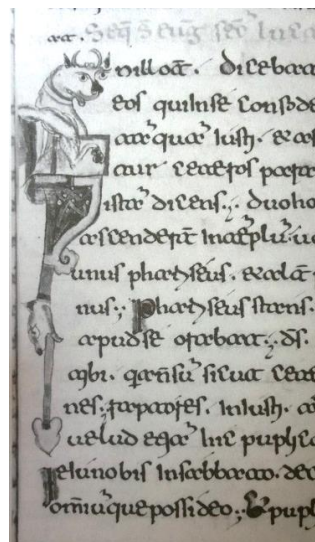 Seq̄ S eug̃ sec̃ Luca
In illo t̄. dicebat
eos qui in se confide
tāquā iusti. et as
ceteros para
istā dicens; duo ho
ascenderūt in tēplū. u
unus phariseus. et alt
nus; phariseus stans.
apud se orabat; ds̄.
tibi. sicut cete
nes; raptores. iniusti. a
uelud etiā hic puplica
Ieiuno bis in sabbato. dec
omniū que possideo; Et pupl